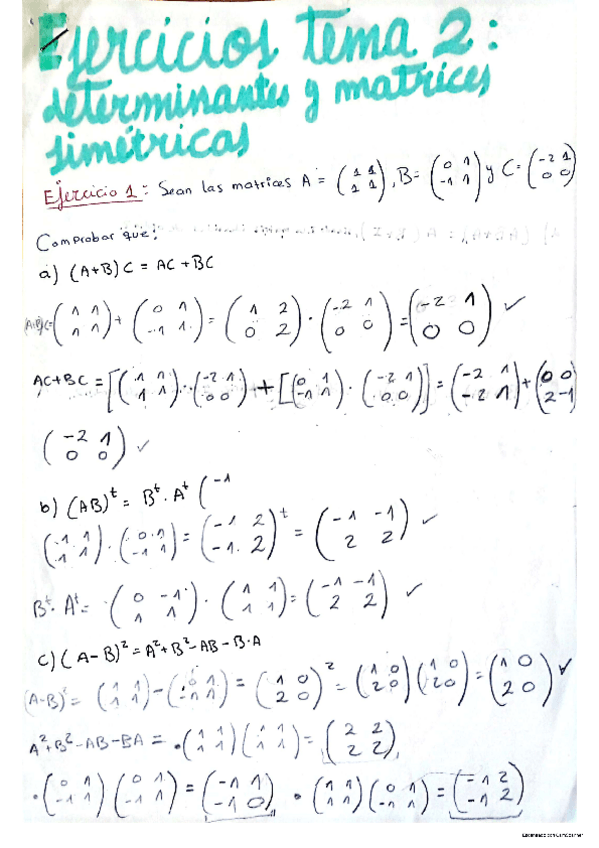 Ejercicios tema 2:
determinantes y matrices
simétricas
Ejercicio 1: Sean las matrices A = (1 1; 1 1), B = (0 1; -1 1) y C = (-2 1; 0 0)
Comprobar que:
a) (A+B) C = AC + BC
(A+B)C = (1 1; 1 1) + (0 1; -1 1) = (1 2; 0 2) · (-2 1; 0 0) = (-2 1; 0 0) ✓
AC+BC = [(1 1; 1 1) · (-2 1; 0 0)] + [(0 1; -1 1) · (-2 1; 0 0)] = (-2 1; -2 1) + (0 0; 2 -1)
(-2 1; 0 0) ✓
b) (AB)^t = B^t · A^t (-1
(1 1; 1 1) · (0 1; -1 1) = (-1 2; -1 2)^t = (-1 -1; 2 2) ✓
B^t · A^t = (0 -1; 1 1) · (1 1; 1 1) = (-1 -1; 2 2) ✓
c) (A-B)^2 = A^2 + B^2 - AB - B·A
(A-B)^2 = (1 1; 1 1) - (0 1; -1 1) = (1 0; 2 0)^2 = (1 0; 2 0) (1 0; 2 0) = (1 0; 2 0) ✓
A^2+B^2-AB-BA = · (1 1; 1 1) (1 1; 1 1) = (2 2; 2 2),
· (0 1; -1 1) (0 1; -1 1) = (-1 1; -1 0) · (1 1; 1 1) (0 1; -1 1) = (-1 2; -1 2)